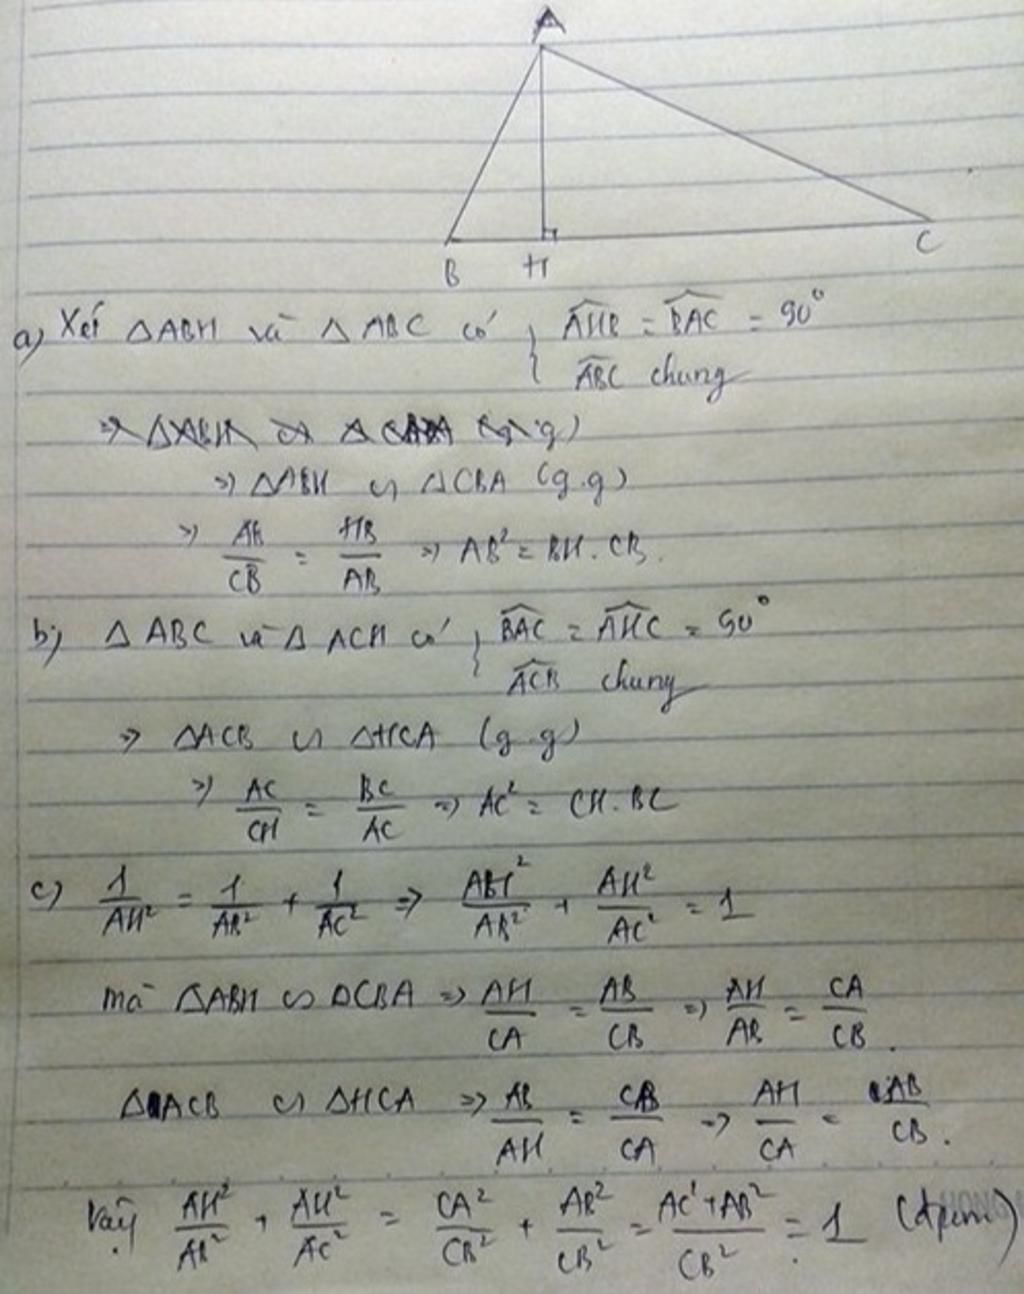 A
B H C
a) Xét △ABH và △ABC có { AHB = BAC = 90°
ABC chung
=> △ABH ∽ △CBA (g.g)
=> △ABH ∽ △CBA (g.g)
=> AB/CB = HB/AB => AB² = BH.CB.
b) △ABC và △ACH có { BAC = AHC = 90°
ACB chung
=> △ACB ∽ △HCA (g.g)
=> AC/CH = BC/AC => AC² = CH.BC
c) 1/AH² = 1/AB² + 1/AC² => AH²/AB² + AH²/AC² = 1
mà △ABH ∽ △CBA => AH/CA = AB/CB => AH/AB = CA/CB.
△ACB ∽ △HCA => AB/AH = CB/CA => AH/CA = AB/CB.
Vậy AH²/AB² + AH²/AC² = CA²/CB² + AB²/CB² = AC²+AB²/CB² = 1 (đpcm)